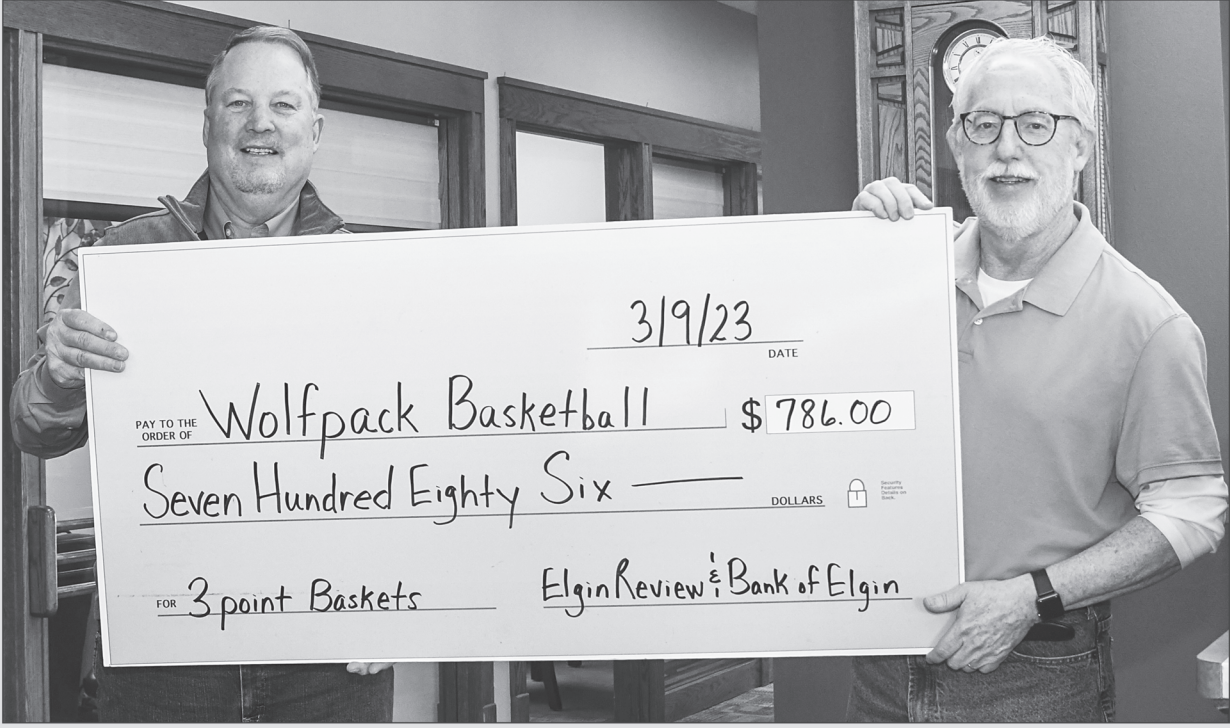 3/9/23
DATE
PAY TO THE
ORDER OF
Wolfpack Basketball $ 786.00
Seven Hundred Eighty Six
DOLLARS
Security
Features
Details on
Back.
FOR 3 point Baskets
Elgin Review & Bank of Elgin